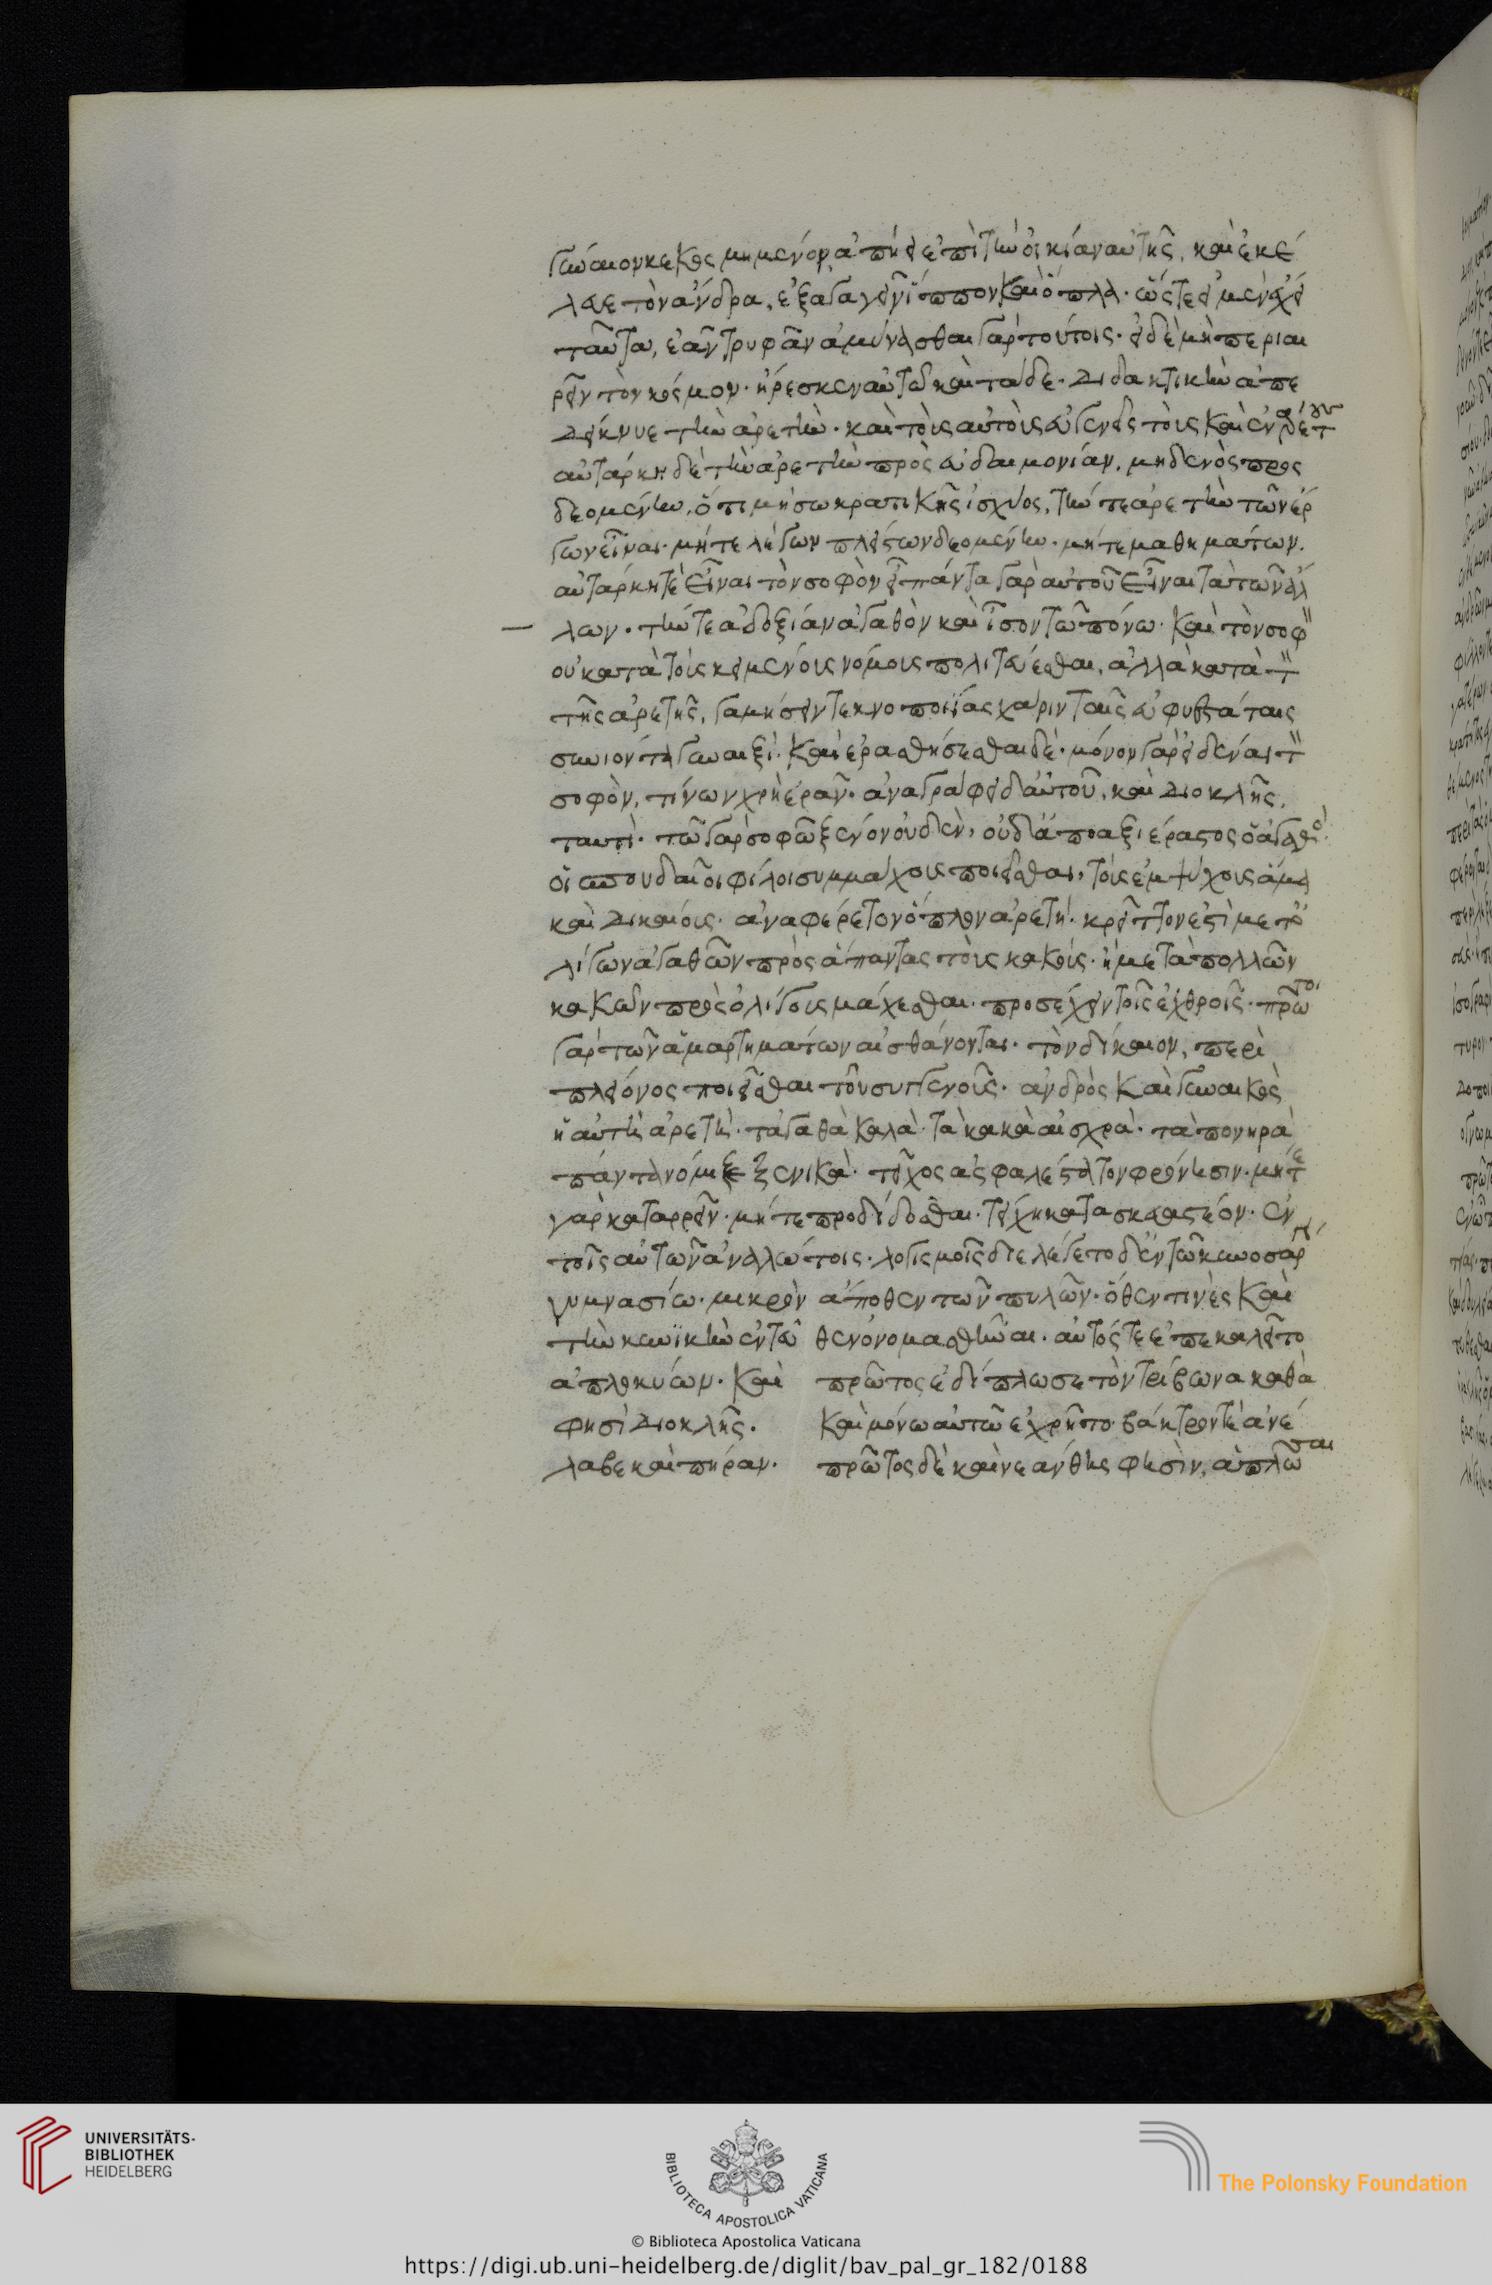 γύναιον κεκοσμημένον ἀπήει ἐπὶ τὴν οἰκίαν αὐτῆς, καὶ ἐκέ
λευε τὸν ἄνδρα, ἐξαγαγεῖν ἵππον καὶ ὅπλα· ὥστε εἰ μὲν ἔχει
ταῦτα, ἐᾶν τρυφᾶν ἀμύνασθαι γὰρ τούτοις· εἰ δὲ μὴ περιαι
ρεῖν τὸν κόσμον· ἤρεσκεν αὐτῶ καὶ τάδε· διδακτικὴν ἀπε
δείκνυε τὴν ἀρετὴν· καὶ τοὶς αὐτοὶς εὐγενεῖς τοὶς καὶ ἐναρέτους
αὐτάρκη δὲ τὴν ἀρετὴν πρὸς εὐδαιμονίαν, μηδενὸς προς
δεομένην, ὅτι μὴ σωκρατικῆς ἰσχύος, τήν τε ἀρετὴν τῶν ἔρ
γων εἶναι· μήτε λόγων πλείστων δεομένην· μήτε μαθημάτων.
αὐτάρκη τὲ εἶναι τὸν σοφὸν πάντα γὰρ αὐτοῦ εἶναι τὰ τῶν ἄλ
λων· τήν τε ἀδοξίαν ἀγαθὸν καὶ ἶσον τῶ πόνω· καὶ τὸν σοφὸν
οὐ κατὰ τοὶς κειμένοις νόμοις πολιτεύεσθαι, ἀλλὰ κατὰ τὸν
τῆς ἀρετῆς, γαμήσειν τεκνοποιΐας χάριν ταῖς εὐφυεστάταις
συνιόντα γυναιξί· καὶ ἐρασθήσεσθαι δὲ· μόνον γὰρ εἰδέναι τὸν
σοφὸν, τίνων χρὴ ἐρᾶν· ἀναγράφει δ' αὐτοῦ, καὶ διοκλῆς,
ταυτί· τῶ γὰρ σοφῶ ξένον οὐδὲν, οὐδ' ἄπο ἀξιέραστος ὁ ἀγαθός·
οἱ σπουδαῖοι φίλοι συμμάχοις ποιεῖσθαι, τοὶς εὐψύχοις ἅμα
καὶ δικαίοις· ἀναφέρετον ὅπλον ἀρετή· κρεῖττον ἐστὶ μετ' ὀ
λίγων ἀγαθῶν πρὸς ἅπαντας τοὶς κακοίς· ἢ μετὰ πολλῶν
κακῶν πρὸς ὀλίγοις μάχεσθαι. προσέχειν τοῖς ἐχθροῖς· πρῶτοι
γὰρ τῶν ἁμαρτημάτων αἰσθάνονται· τὸν δίκαιον, περὶ
πλείονος ποιεῖσθαι τοῦ συγγενοῖς· ἀνδρὸς καὶ γυναικὸς
ἡ αὐτὴ ἀρετὴ· τἀγαθὰ καλὰ· τὰ κακὰ αἰσχρὰ· τὰ πονηρὰ
πάντα νόμιζε ξενικὰ· τεῖχος ἀσφαλέστατον φρόνησιν· μήτε
γὰρ καταρρεῖν· μήτε προδίδοσθαι· τείχη κατασκευαστέον· ἐν
τοῖς αὑτῶν ἀναλώτοις· λογισμοῖς διελέγετο δ' ἐν τῶ κυνοσάργει
γυμνασίω· μικρὸν ἄποθεν τῶν πυλῶν· ὅθεν τινὲς καὶ
τὴν κυνϊκὴν ἐντεῦ θεν ὀνομασθῆναι. αὐτός τε ἐπεκαλεῖτο
ἁπλοκύων· καὶ πρῶτος ἐδίπλωσε τὸν τρίβωνα καθὰ
φησὶ διοκλῆς. καὶ μόνω αὐτῶ ἐχρῆτο· βάκτρον τὲ ἀνέ
λαβε καὶ πήραν. πρῶτος δὲ καὶ νεάνθης φησὶν, ἁπλῶσαι
UNIVERSITÄTS-
BIBLIOTHEK
HEIDELBERG
BIBLIOTECA APOSTOLICA VATICANA
The Polonsky Foundation
© Biblioteca Apostolica Vaticana
https://digi.ub.uni-heidelberg.de/diglit/bav_pal_gr_182/0188